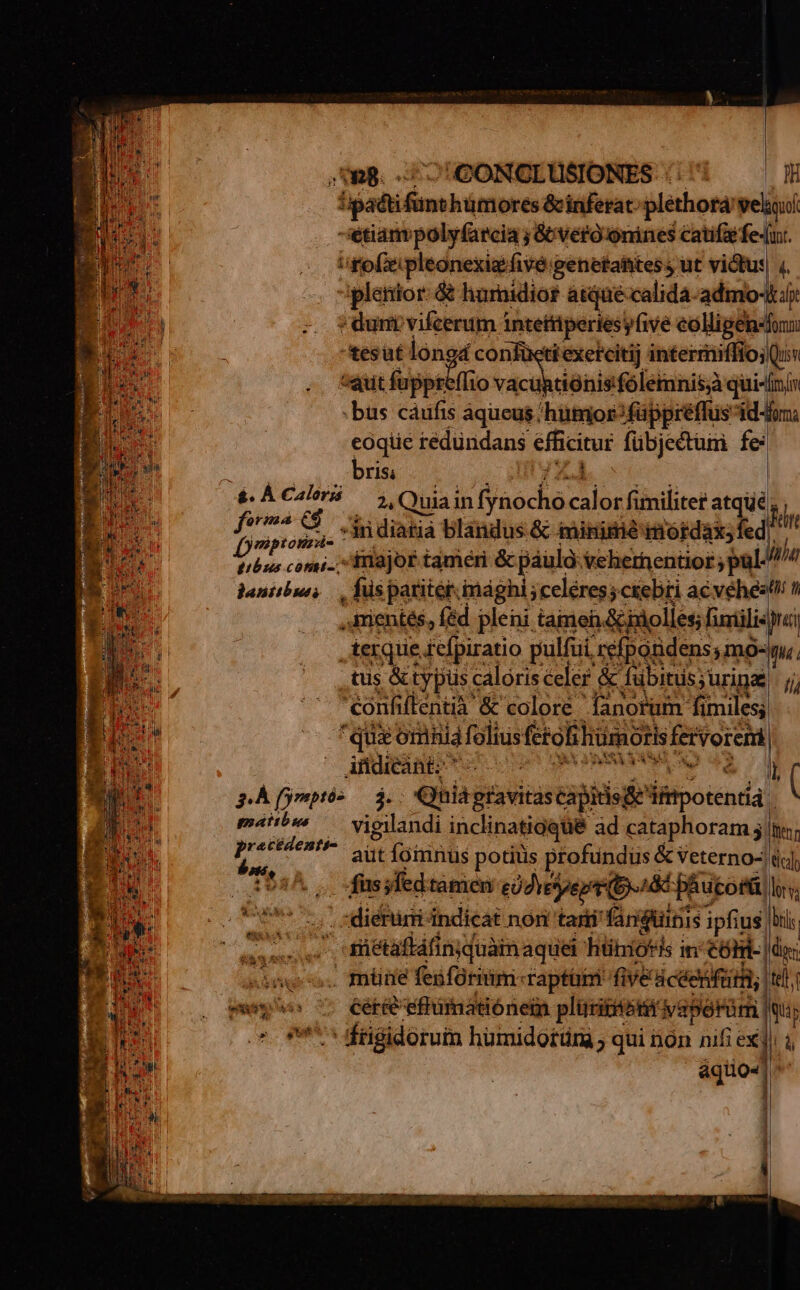 CONCLUSIONES
pacti sunt humores & inferat plethora vel
etiam polysarcia; & verò omnes causæ se-
rosæ pleonexiæ sivè generantes, ut victus
plenior & humidior atque calida admo-
dum viscerum intemperies, sivè colligen-
tes ut longa consueti exercitij intermissio,
aut suppressio vacuationis solemnis, à qui-
bus causis aqueus humor suppressus id-
eoque redundans efficitur subjectum fe-
bris.
2. A Caloris forma & symptomatibus comitantibus,
2. Quia in synocho calor similiter atque
in diaria blandus & minimè mordax, sed
major tamen & paulò vehementior, pul-
sus pariter magni, celeres, crebri ac vehe-
mentes, sed pleni tamen & molles; simili-
terque respiratio pulsui respondens, mo-
tus & typus caloris celer & subitus, urinæ
consistentia & colore sanorum similes;
quæ omnia solius serosi humoris fervorem
indicant.
3. A symptomatibus præcedentibus,
3. Quia gravitas capitis & impotentia
vigilandi inclinatioque ad cataphoram,
aut somnus potiùs profundus & veterno-
sus, sed tamen & paucorū
dierum indicat non tam sanguinis ipsius
metastasin, quàm aquei humoris in com-
mune sensorium raptum sivè ascensum,
certè effumationem plurimorum vaporum
frigidorum humidorum, qui non nisi ex
aquo-